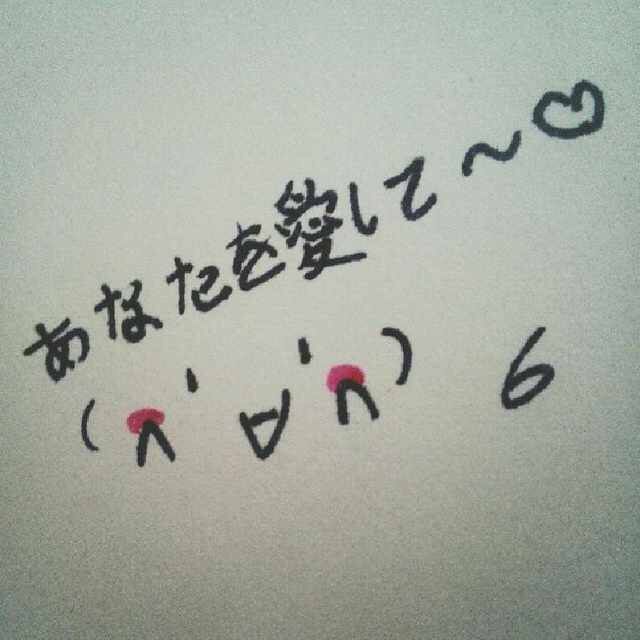 あなたを愛して～♡
(∩'∀'∩) 6